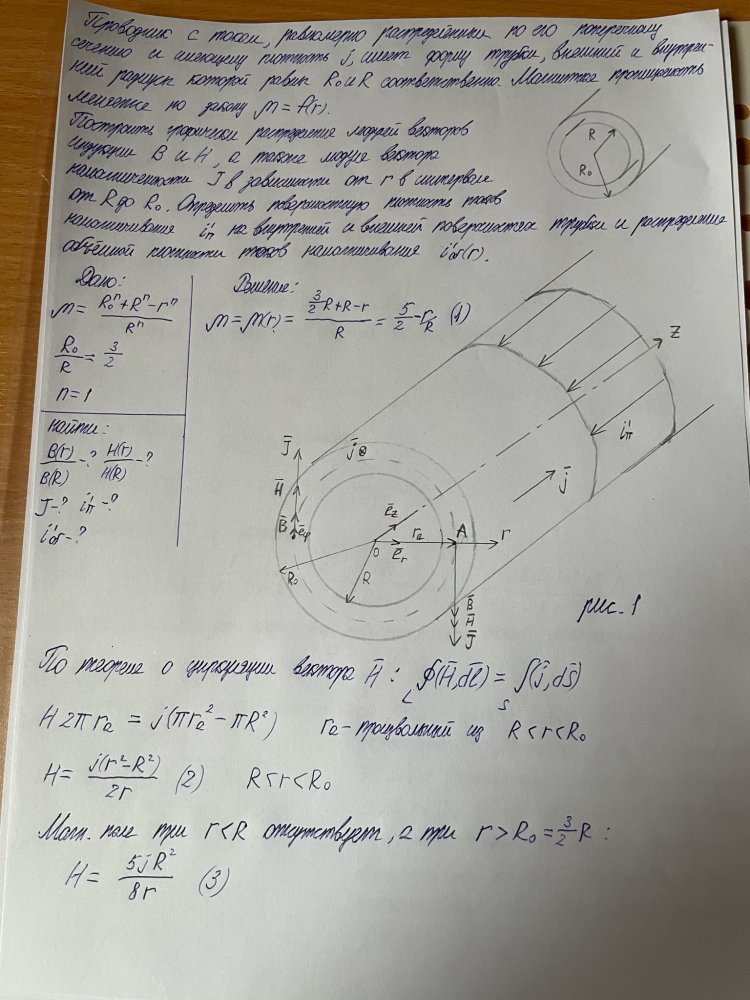 Проводник с током, равномерно распределённым по его поперечному
сечению и имеющему плотность j, имеет форму трубки, внешний и внутрен-
ний радиусы которой равны R₀ и R соответственно. Магнитная проницаемость
меняется по закону μ = f(r).
Построить графически распределения модулей векторов
индукции B и H, а также модуль вектора
намагниченности J в зависимости от r в интервале
от R до R₀. Определить поверхностную плотность токов
намагничивания i'п на внутренней и внешней поверхностях трубки и распределение
объёмной плотности токов намагничивания i'об(r).
R
R₀
Дано:
μ = (R₀ⁿ + Rⁿ - rⁿ)/Rⁿ
R₀/R = 3/2
n = 1
Найти:
B(r)/B(R) - ? H(r)/H(R) - ?
J - ? i'п - ?
i'об - ?
Решение:
μ = μ(r) = (3/2 R + R - r)/R = 5/2 - r/R (1)
z
i'п
j̄
J̄
j̄ ⊗
H̄
B̄
ē_φ
ē_z
r_e
A
r
O
ē_r
R₀
R
B̄
H̄
J̄
рис. 1
По теореме о циркуляции вектора H̄ : ∮_L(H̄, dl̄) = ∫_S(j̄, ds̄)
H 2π r_e = j(π r_e² - πR²) r_e - произвольный из R < r < R₀
H = j(r² - R²)/2r (2) R < r < R₀
Магн. поле при r < R отсутствует, а при r > R₀ = 3/2 R :
H = 5jR²/8r (3)